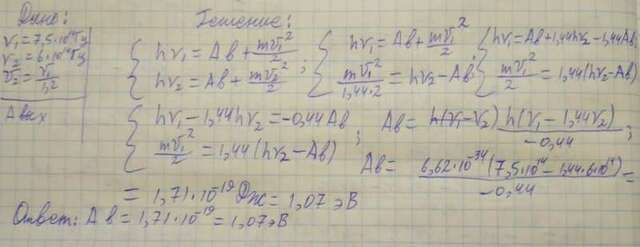 Дано:
ν₁ = 7,5·10¹⁴ Гц
ν₂ = 6·10¹⁴ Гц
v₂ = v₁/1,2
Aвых
Решение:
{ hν₁ = Aв + mv₁²/2
{ hν₂ = Aв + mv₂²/2 ;
{ hν₁ = Aв + mv₁²/2
{ mv₁²/1,44·2 = hν₂ - Aв ;
{ hν₁ = Aв + 1,44hν₂ - 1,44Aв
{ mv₁²/2 = 1,44(hν₂ - Aв)
{ hν₁ - 1,44hν₂ = -0,44Aв
{ mv₁²/2 = 1,44(hν₂ - Aв) ;
Aв = h(ν₁ - 1,44ν₂)/-0,44 ;
Aв = 6,62·10⁻³⁴(7,5·10¹⁴ - 1,44·6·10¹⁴)/-0,44 =
= 1,71·10⁻¹⁹ Дж = 1,07 эВ
Ответ: Aв = 1,71·10⁻¹⁹ = 1,07 эВ